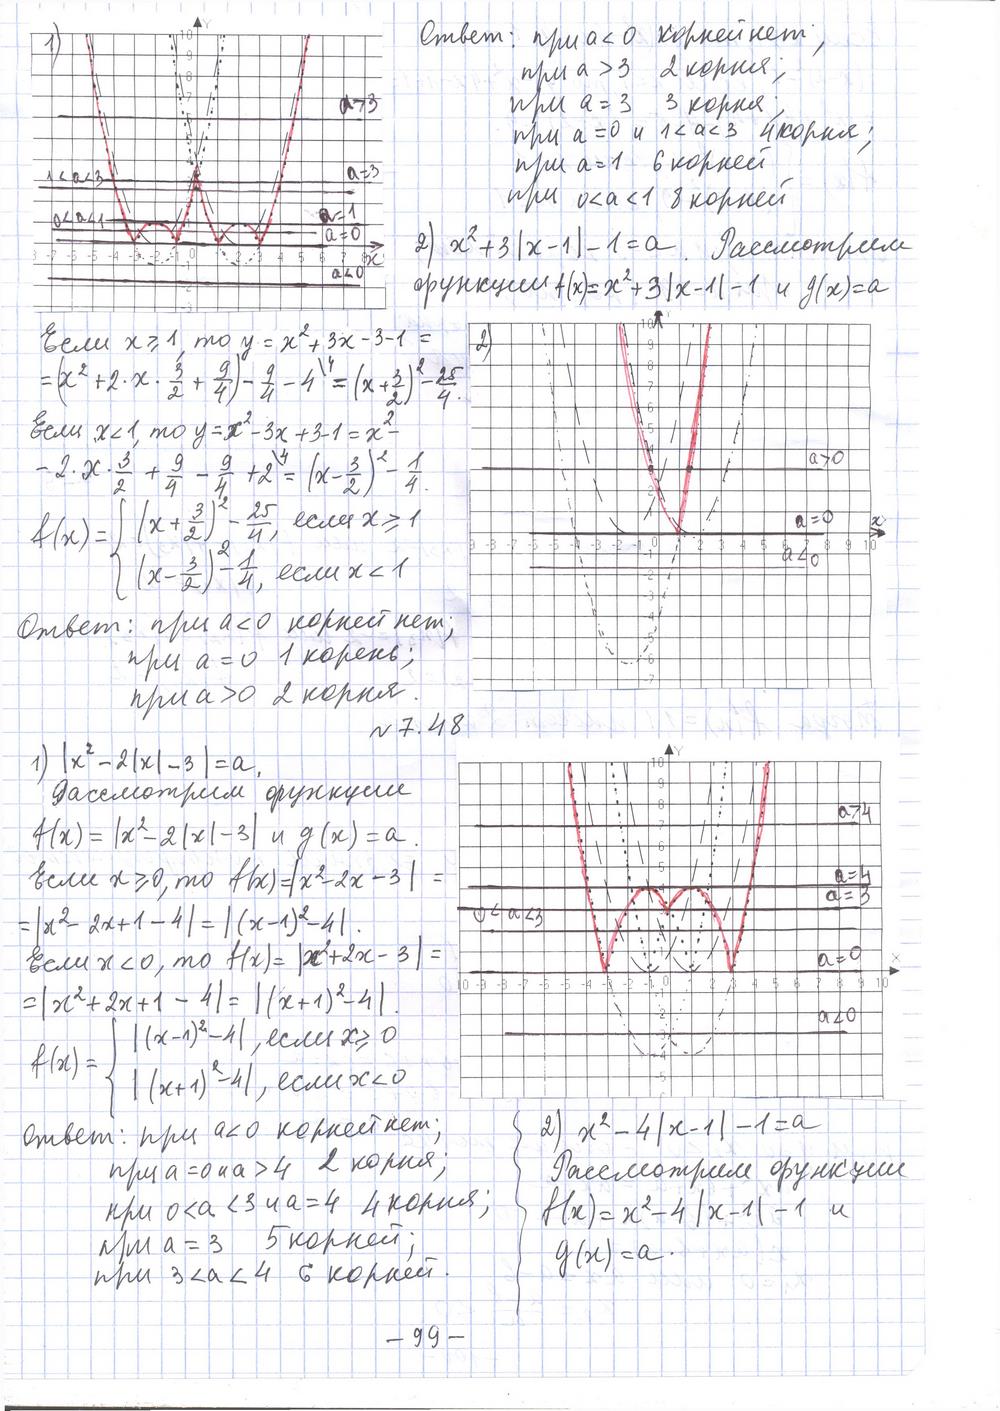 1)
Y
a>3
a=3
1<a<3
a=1
0<a<1
a=0
x
a<0
Ответ: при a<0 корней нет;
при a>3 2 корня;
при a=3 3 корня;
при a=0 и 1<a<3 4 корня;
при a=1 6 корней
при 0<a<1 8 корней
2) x²+3|x-1|-1=a. Рассмотрим
функции f(x)=x²+3|x-1|-1 и g(x)=a
Если x≥1, то y=x²+3x-3-1=
=(x²+2·x·3/2+9/4)-9/4-4\4=(x+3/2)²-25/4.
Если x<1, то y=x²-3x+3-1=x²-
-2·x·3/2+9/4-9/4+2\4=(x-3/2)²-1/4.
f(x)={(x+3/2)²-25/4, если x≥1
(x-3/2)²-1/4, если x<1
2)
a>0
a=0
x
a<0
Ответ: при a<0 корней нет;
при a=0 1 корень;
при a>0 2 корня.
№7.48
1) |x²-2|x|-3|=a.
Рассмотрим функции
f(x)=|x²-2|x|-3| и g(x)=a.
Если x≥0, то f(x)=|x²-2x-3|=
=|x²-2x+1-4|=|(x-1)²-4|.
Если x<0, то f(x)=|x²+2x-3|=
=|x²+2x+1-4|=|(x+1)²-4|.
f(x)={|(x-1)²-4|, если x≥0
|(x+1)²-4|, если x<0
Y
a>4
a=4
a=3
0<a<3
a=0
X
a<0
Ответ: при a<0 корней нет;
при a=0 и a>4 2 корня;
при 0<a<3 и a=4 4 корня;
при a=3 5 корней;
при 3<a<4 6 корней.
2) x²-4|x-1|-1=a
Рассмотрим функции
f(x)=x²-4|x-1|-1 и
g(x)=a.
-99-